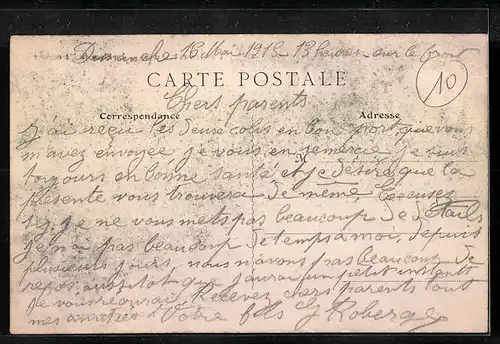 Dimanche 16 Mai 1915 13 heures sur le front
10
CARTE POSTALE
Chers parents
Correspondance
Adresse
j'ai reçu les deux colis en bon port, que vous
m'avez envoyée je vous en remercie je suis
toujours en bonne santé et je désire que la
présente vous trouvera de même, Excusez
si je ne vous mets pas beaucoup de détails
je n'ai pas beaucoup de temps a moi, depuis
plusieurs jours nous n'avons pas beaucoup de
repos aussitot que j'aurai un petit instants
je vous Recevez chers parents tout
mes Votre fils G Roberge